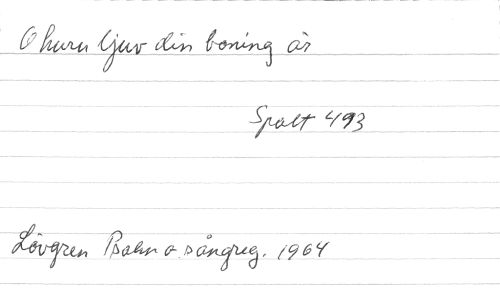 O huru ljuv din boning är
Spalt 493
Lövgren Psalm o. sångreg. 1964